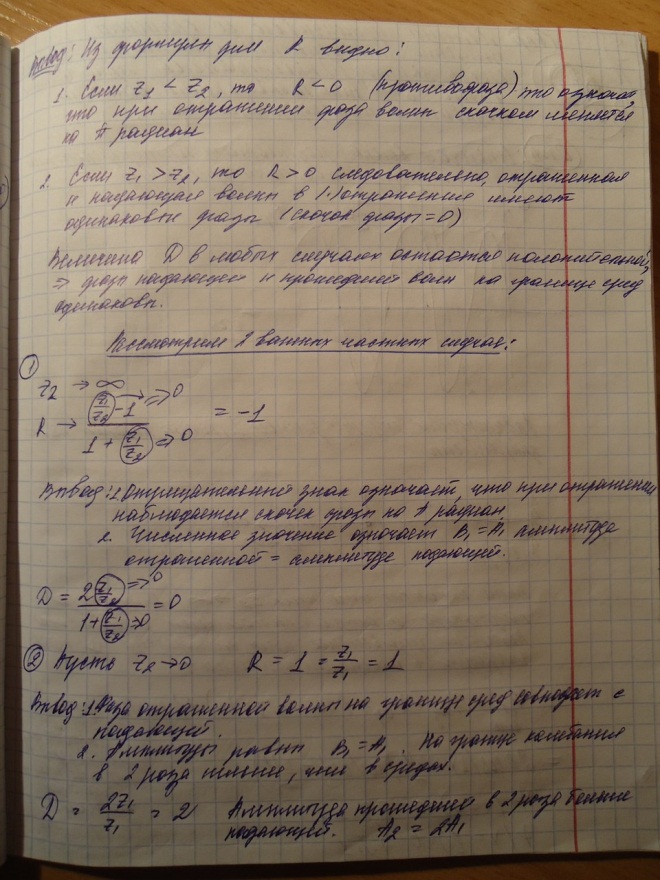 Вывод: Из формулы для R видно:
1. Если z₁ < z₂, то R < 0 (противофаза) это означает,
что при отражении фаза волны скачком меняется
на π радиан
2. Если z₁ > z₂, то R > 0 следовательно, отраженная
и падающая волны в (·) отражения имеют
одинаковые фазы (скачок фазы = 0)
Величина D в любых случаях остается положительной,
⇒ фазы падающей и прошедшей волн на границе сред
одинаковы.
Рассмотрим 2 важных частных случая:
① z₂ → ∞
R → (z₁/z₂ ⇒ 0 - 1) / (1 + z₁/z₂ ⇒ 0) = -1
Вывод: 1. Отрицательный знак означает, что при отражении
наблюдается скачок фазы на π радиан
2. Численное значение означает B₁ = A₁ амплитуда
отраженной = амплитуде падающей.
D = (2 z₁/z₂ ⇒ 0) / (1 + z₁/z₂ ⇒ 0) = 0
② Пусть z₂ → 0 R = 1 = z₁/z₁ = 1
Вывод: 1. Фаза отраженной волны на границе сред совпадает с
падающей.
2. Амплитуды равны B₁ = A₁. На границе колебания
в 2 раза сильнее, чем в средах.
D = 2z₁/z₁ = 2 Амплитуда прошедшей в 2 раза больше
падающей. A₂ = 2A₁